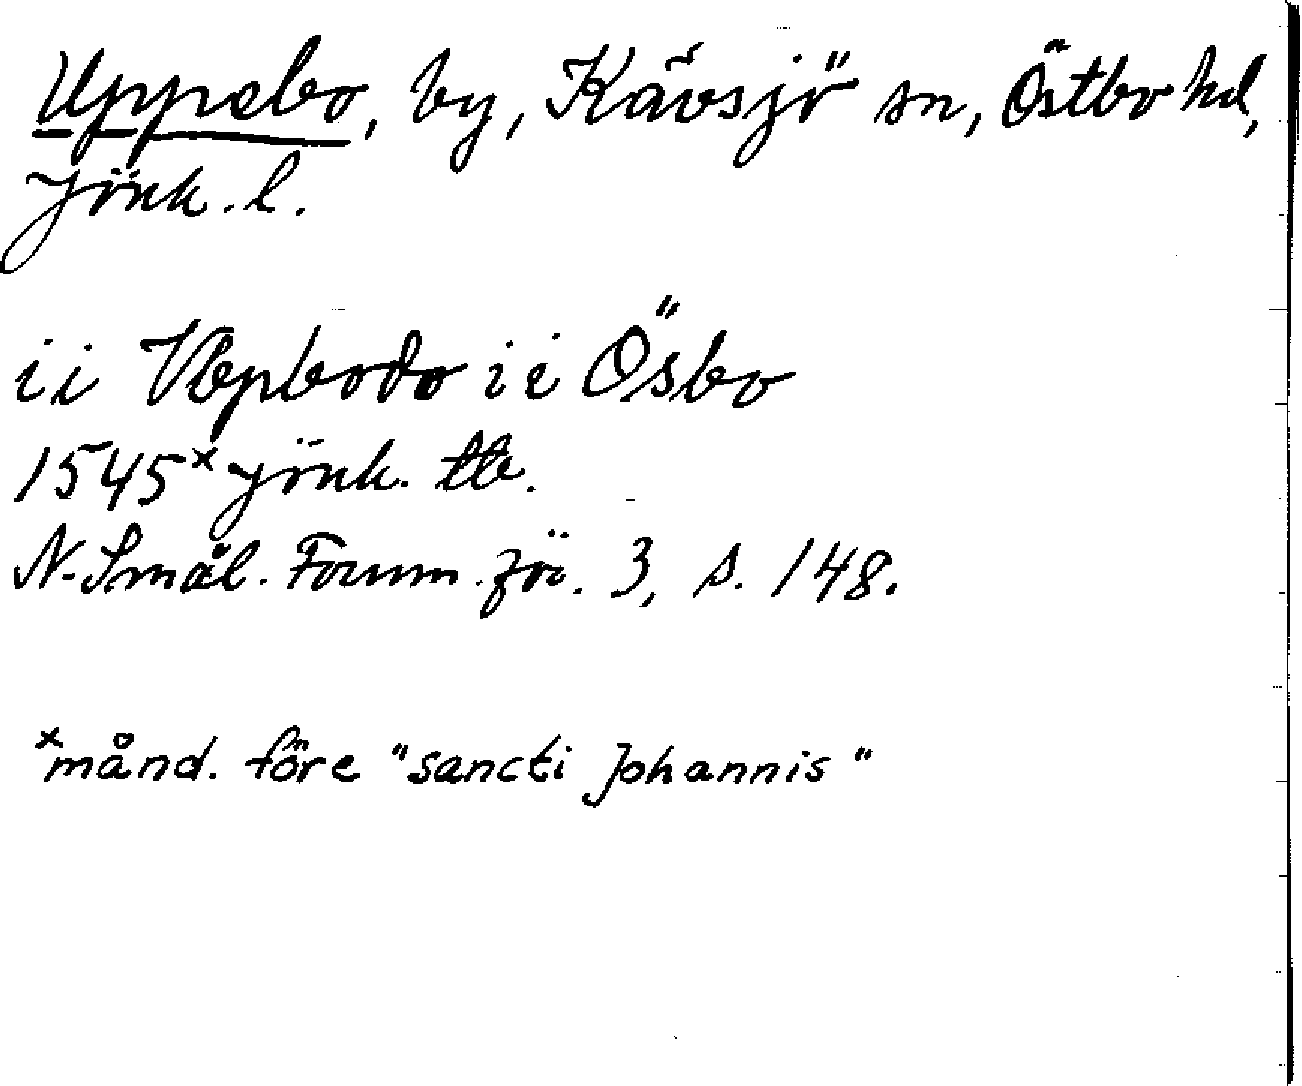 Uppebo, by, Kävsjö sn, Östbo hd,
Jönk. l.
ii Vbpbodo i i Ösbo
1545x Jönk. tb.
N. Smål. Fornm. för. 3, s. 148.
xmånd. före "sancti Johannis"